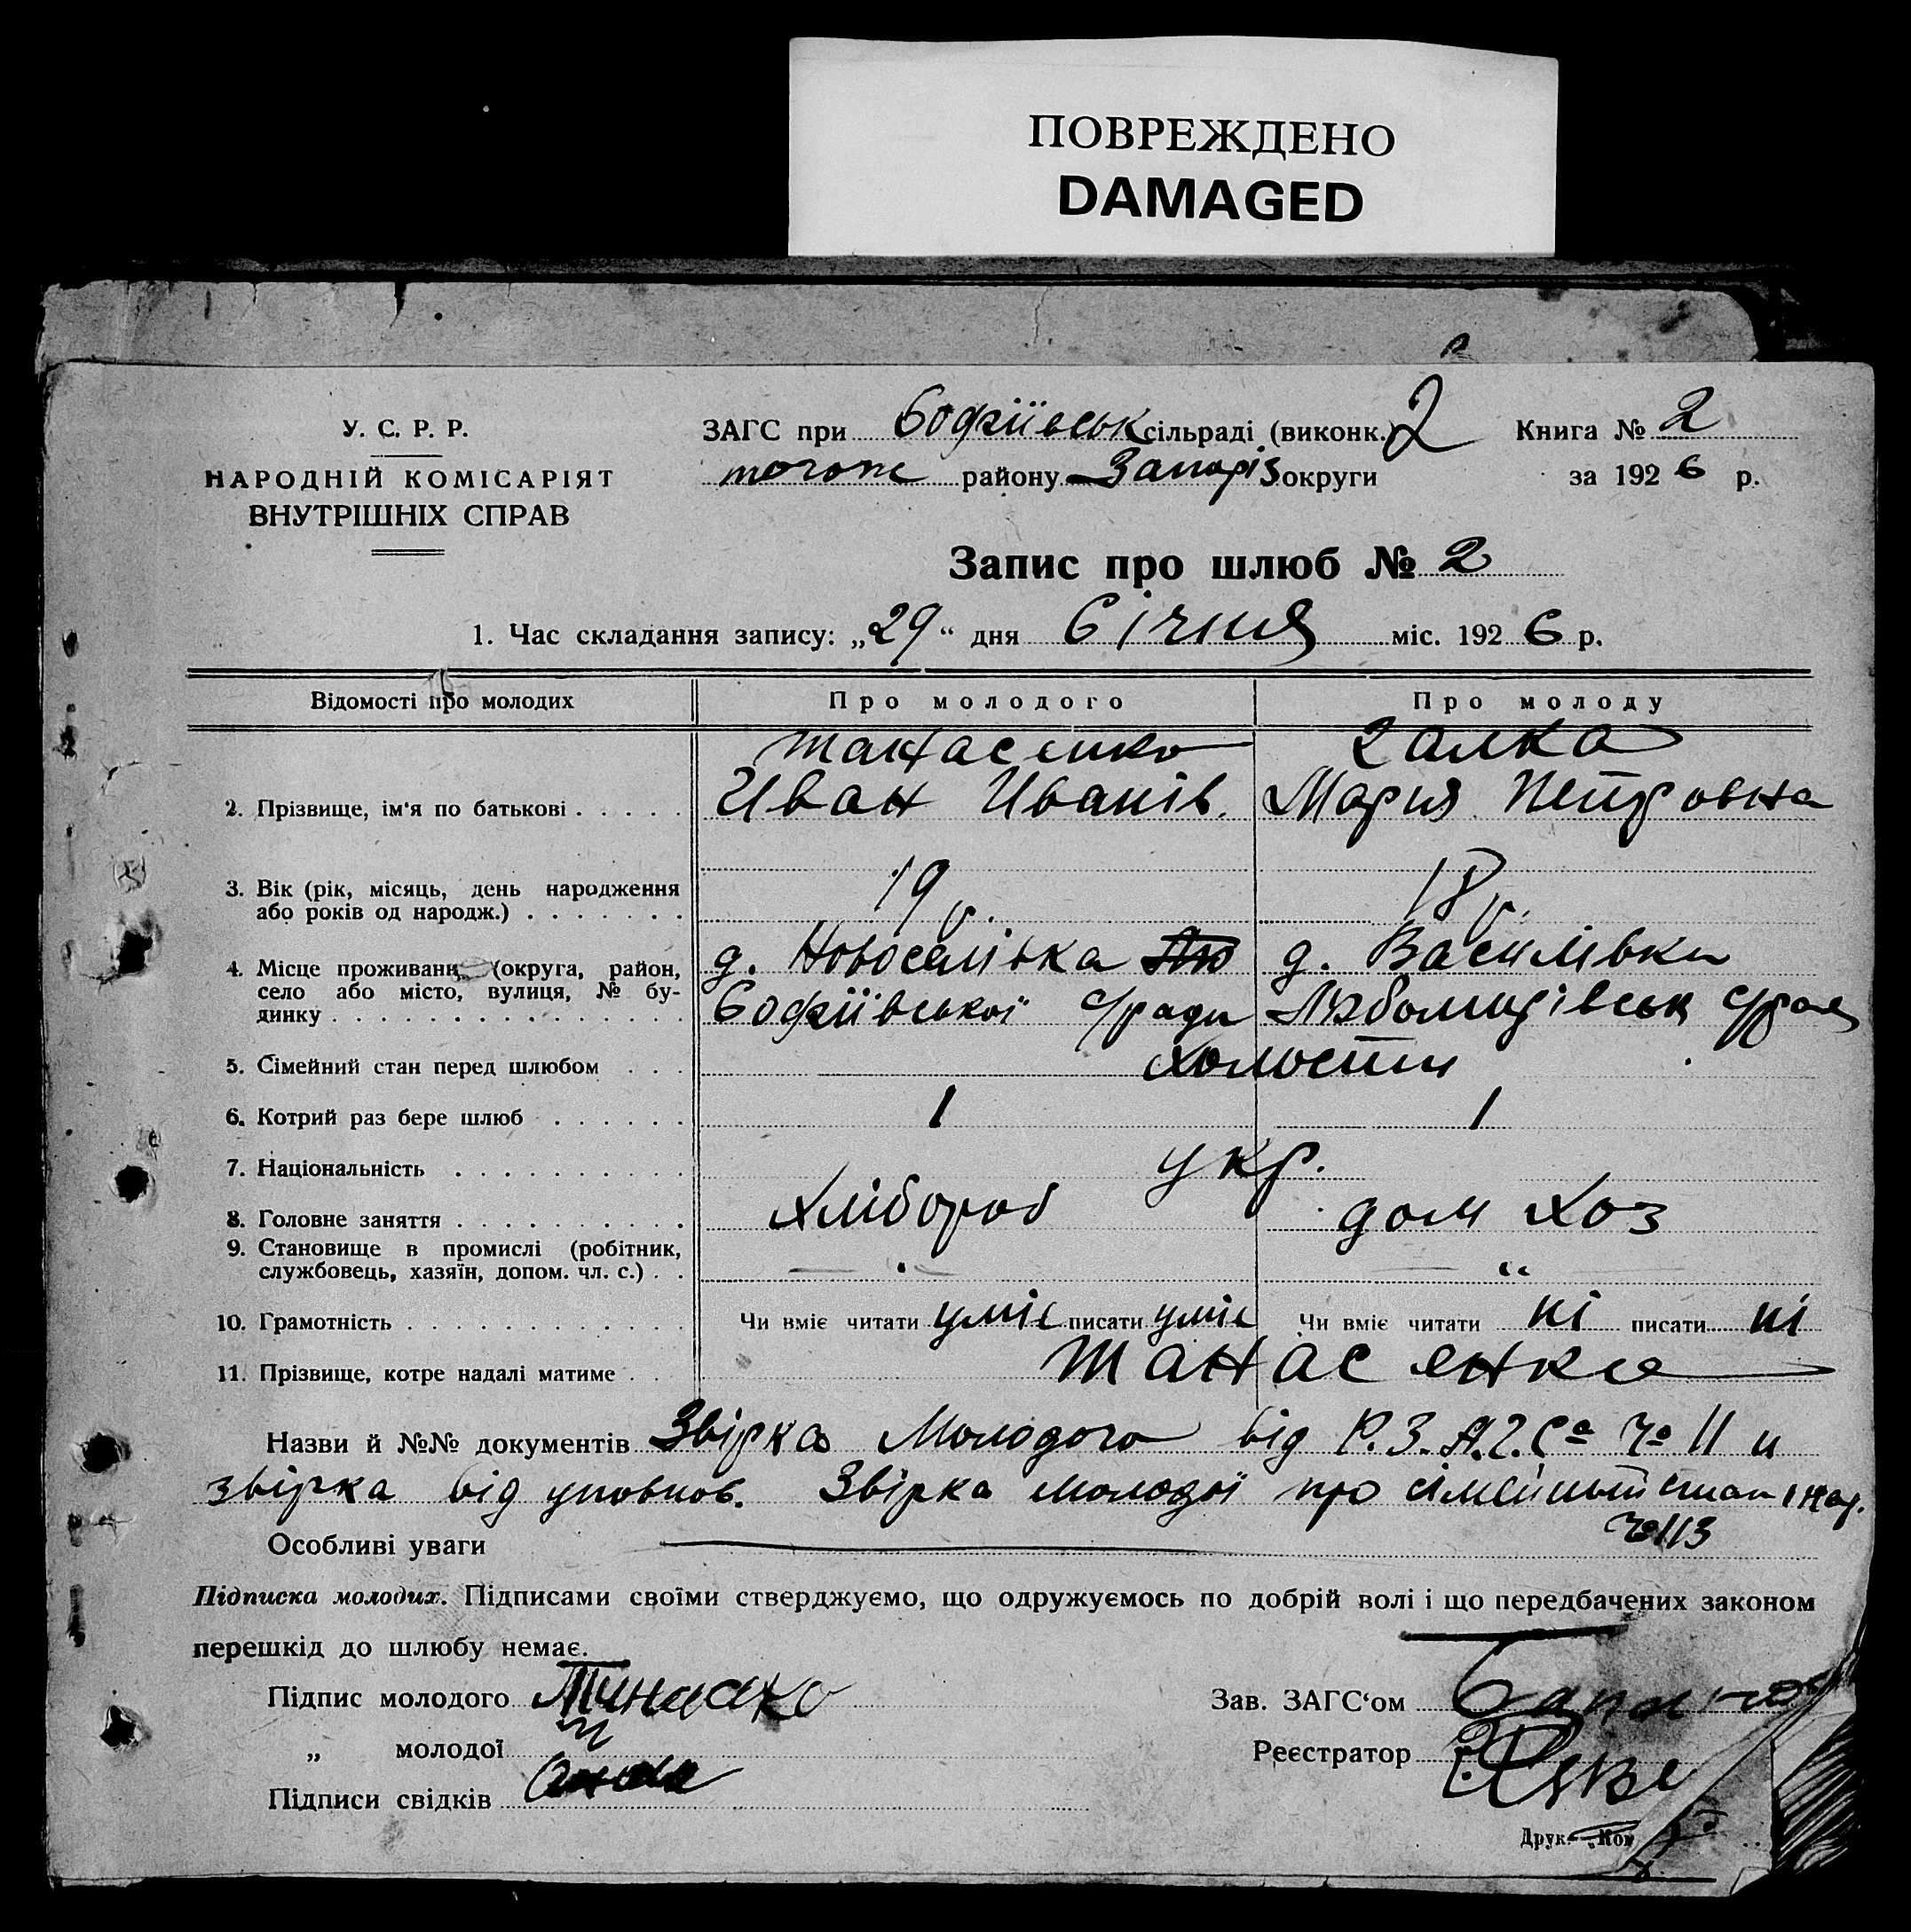 ПОВРЕЖДЕНО
DAMAGED
У. С. Р. Р.
НАРОДНІЙ КОМІСАРІЯТ
ВНУТРІШНІХ СПРАВ
ЗАГС при Софіївськ сільраді (виконк.) 2 Книга № 2
тогож району Запоріз округи за 1926 р.
Запис про шлюб № 2
1. Час складання запису: „29“ дня Січня міс. 1926 р.
Відомості про молодих Про молодого Про молоду
Танасенко Галка
2. Прізвище, ім'я по батькові Иван Иванів. Мария Петровна
3. Вік (рік, місяць, день народження
або років од народж.) 19 р. 18 р.
4. Місце проживання (округа, район, д. Новоселівка д. Василівка
село або місто, вулиця, № бу-
динку Софіївської с/ради Любомирівськ с/ради
5. Сімейний стан перед шлюбом холості
6. Котрий раз бере шлюб 1 1
7. Національність укр.
8. Головне заняття хлібороб дом хоз
9. Становище в промислі (робітник,
службовець, хазяїн, допом. чл. с.) "
10. Грамотність Чи вміє читати уміє писати уміє Чи вміє читати ні писати ні
11. Прізвище, котре надалі матиме Танасенко
Назви й №№ документів Звірка Молодого від Р.З.А.Г.Са № 11 и
звірка від уповнов. Звірка молодої про сімейный стан
№ 113
Особливі уваги
Підписка молодих. Підписами своїми стверджуємо, що одружуємось по добрій волі і що передбачених законом
перешкід до шлюбу немає.
Підпис молодого Зав. ЗАГС'ом
„ молодої Реєстратор
Підписи свідків
Друк.